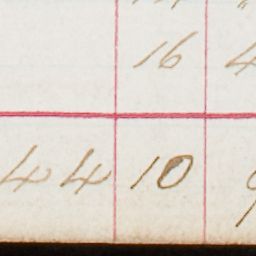 16 4
44 10 9